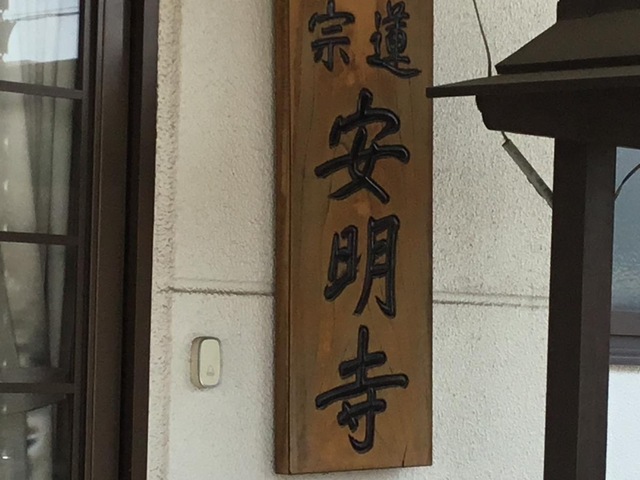 蓮
宗
安明寺